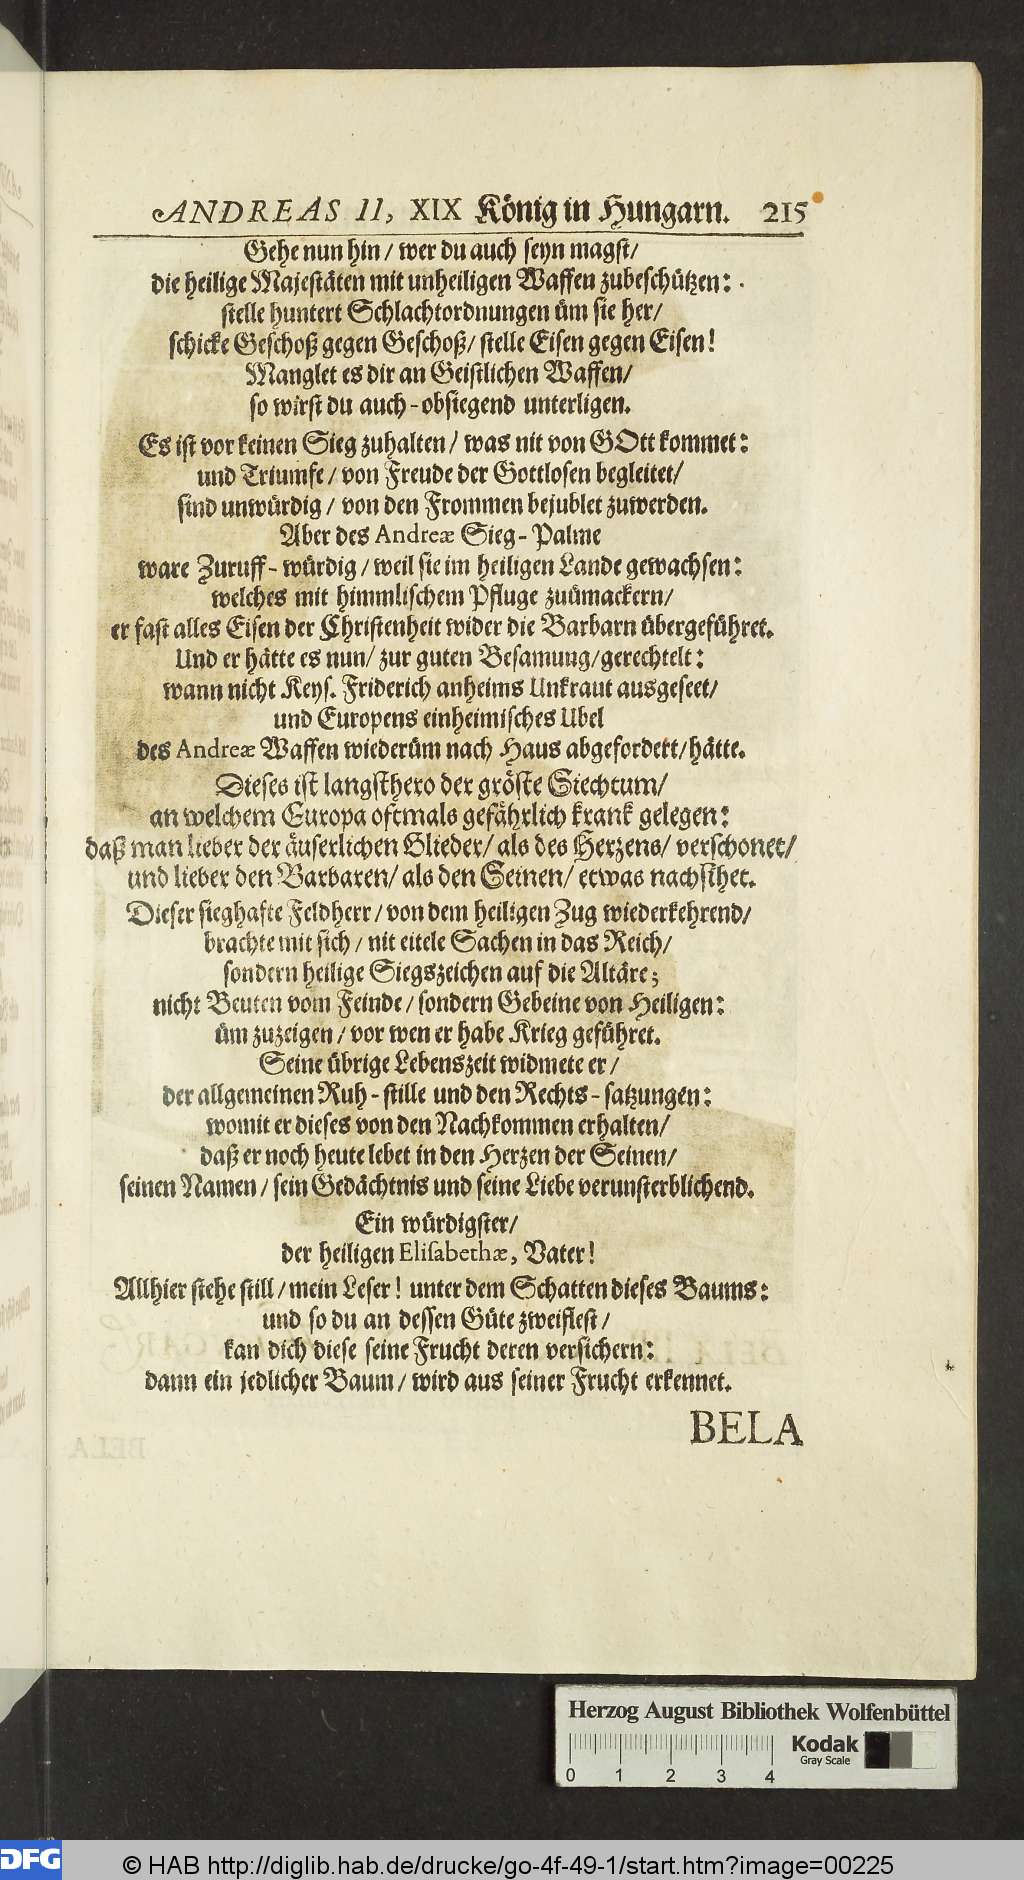 ANDREAS II, XIX König in Hungarn. 215
Gehe nun hin / wer du auch seyn magst/
die heilige Majestäten mit unheiligen Waffen zubeschützen:
stelle huntert Schlachtordnungen üm sie her/
schicke Geschoß gegen Geschoß/ stelle Eisen gegen Eisen!
Manglet es dir an Geistlichen Waffen/
so wirst du auch-obsiegend unterligen.
Es ist vor keinen Sieg zuhalten / was nit von GOtt kommet:
und Triumfe / von Freude der Gottlosen begleitet/
sind unwürdig / von den Frommen bejublet zuwerden.
Aber des Andreæ Sieg-Palme
ware Zuruff-würdig / weil sie im heiligen Lande gewachsen:
welches mit himmlischem Pfluge zuümackern/
er fast alles Eisen der Christenheit wider die Barbarn übergeführet.
Und er hätte es nun/ zur guten Besamung/gerechtelt:
wann nicht Keys. Friderich anheims Unkraut ausgeseet/
und Europens einheimisches Ubel
des Andreæ Waffen wiederüm nach Haus abgefordert/hätte.
Dieses ist langsthero der gröste Siechtum/
an welchem Europa oftmals gefährlich krank gelegen:
daß man lieber der äuserlichen Glieder/ als des Herzens/ verschonet/
und lieber den Barbaren/ als den Seinen/ etwas nachsihet.
Dieser sieghafte Feldherr / von dem heiligen Zug wiederkehrend/
brachte mit sich / nit eitele Sachen in das Reich/
sondern heilige Siegszeichen auf die Altäre;
nicht Beuten vom Feinde / sondern Gebeine von Heiligen:
üm zuzeigen / vor wen er habe Krieg geführet.
Seine übrige Lebenszeit widmete er /
der allgemeinen Ruh-stille und den Rechts-satzungen:
womit er dieses von den Nachkommen erhalten/
daß er noch heute lebet in den Herzen der Seinen/
seinen Namen / sein Gedächtnis und seine Liebe verunsterblichend.
Ein würdigster/
der heiligen Elisabethæ, Vater!
Allhier stehe still / mein Leser! unter dem Schatten dieses Baums:
und so du an dessen Güte zweiflest /
kan dich diese seine Frucht deren versichern:
dann ein jedlicher Baum / wird aus seiner Frucht erkennet.
BELA
Herzog August Bibliothek Wolfenbüttel
Kodak
Gray Scale
0 1 2 3 4
DFG
© HAB http://diglib.hab.de/drucke/go-4f-49-1/start.htm?image=00225